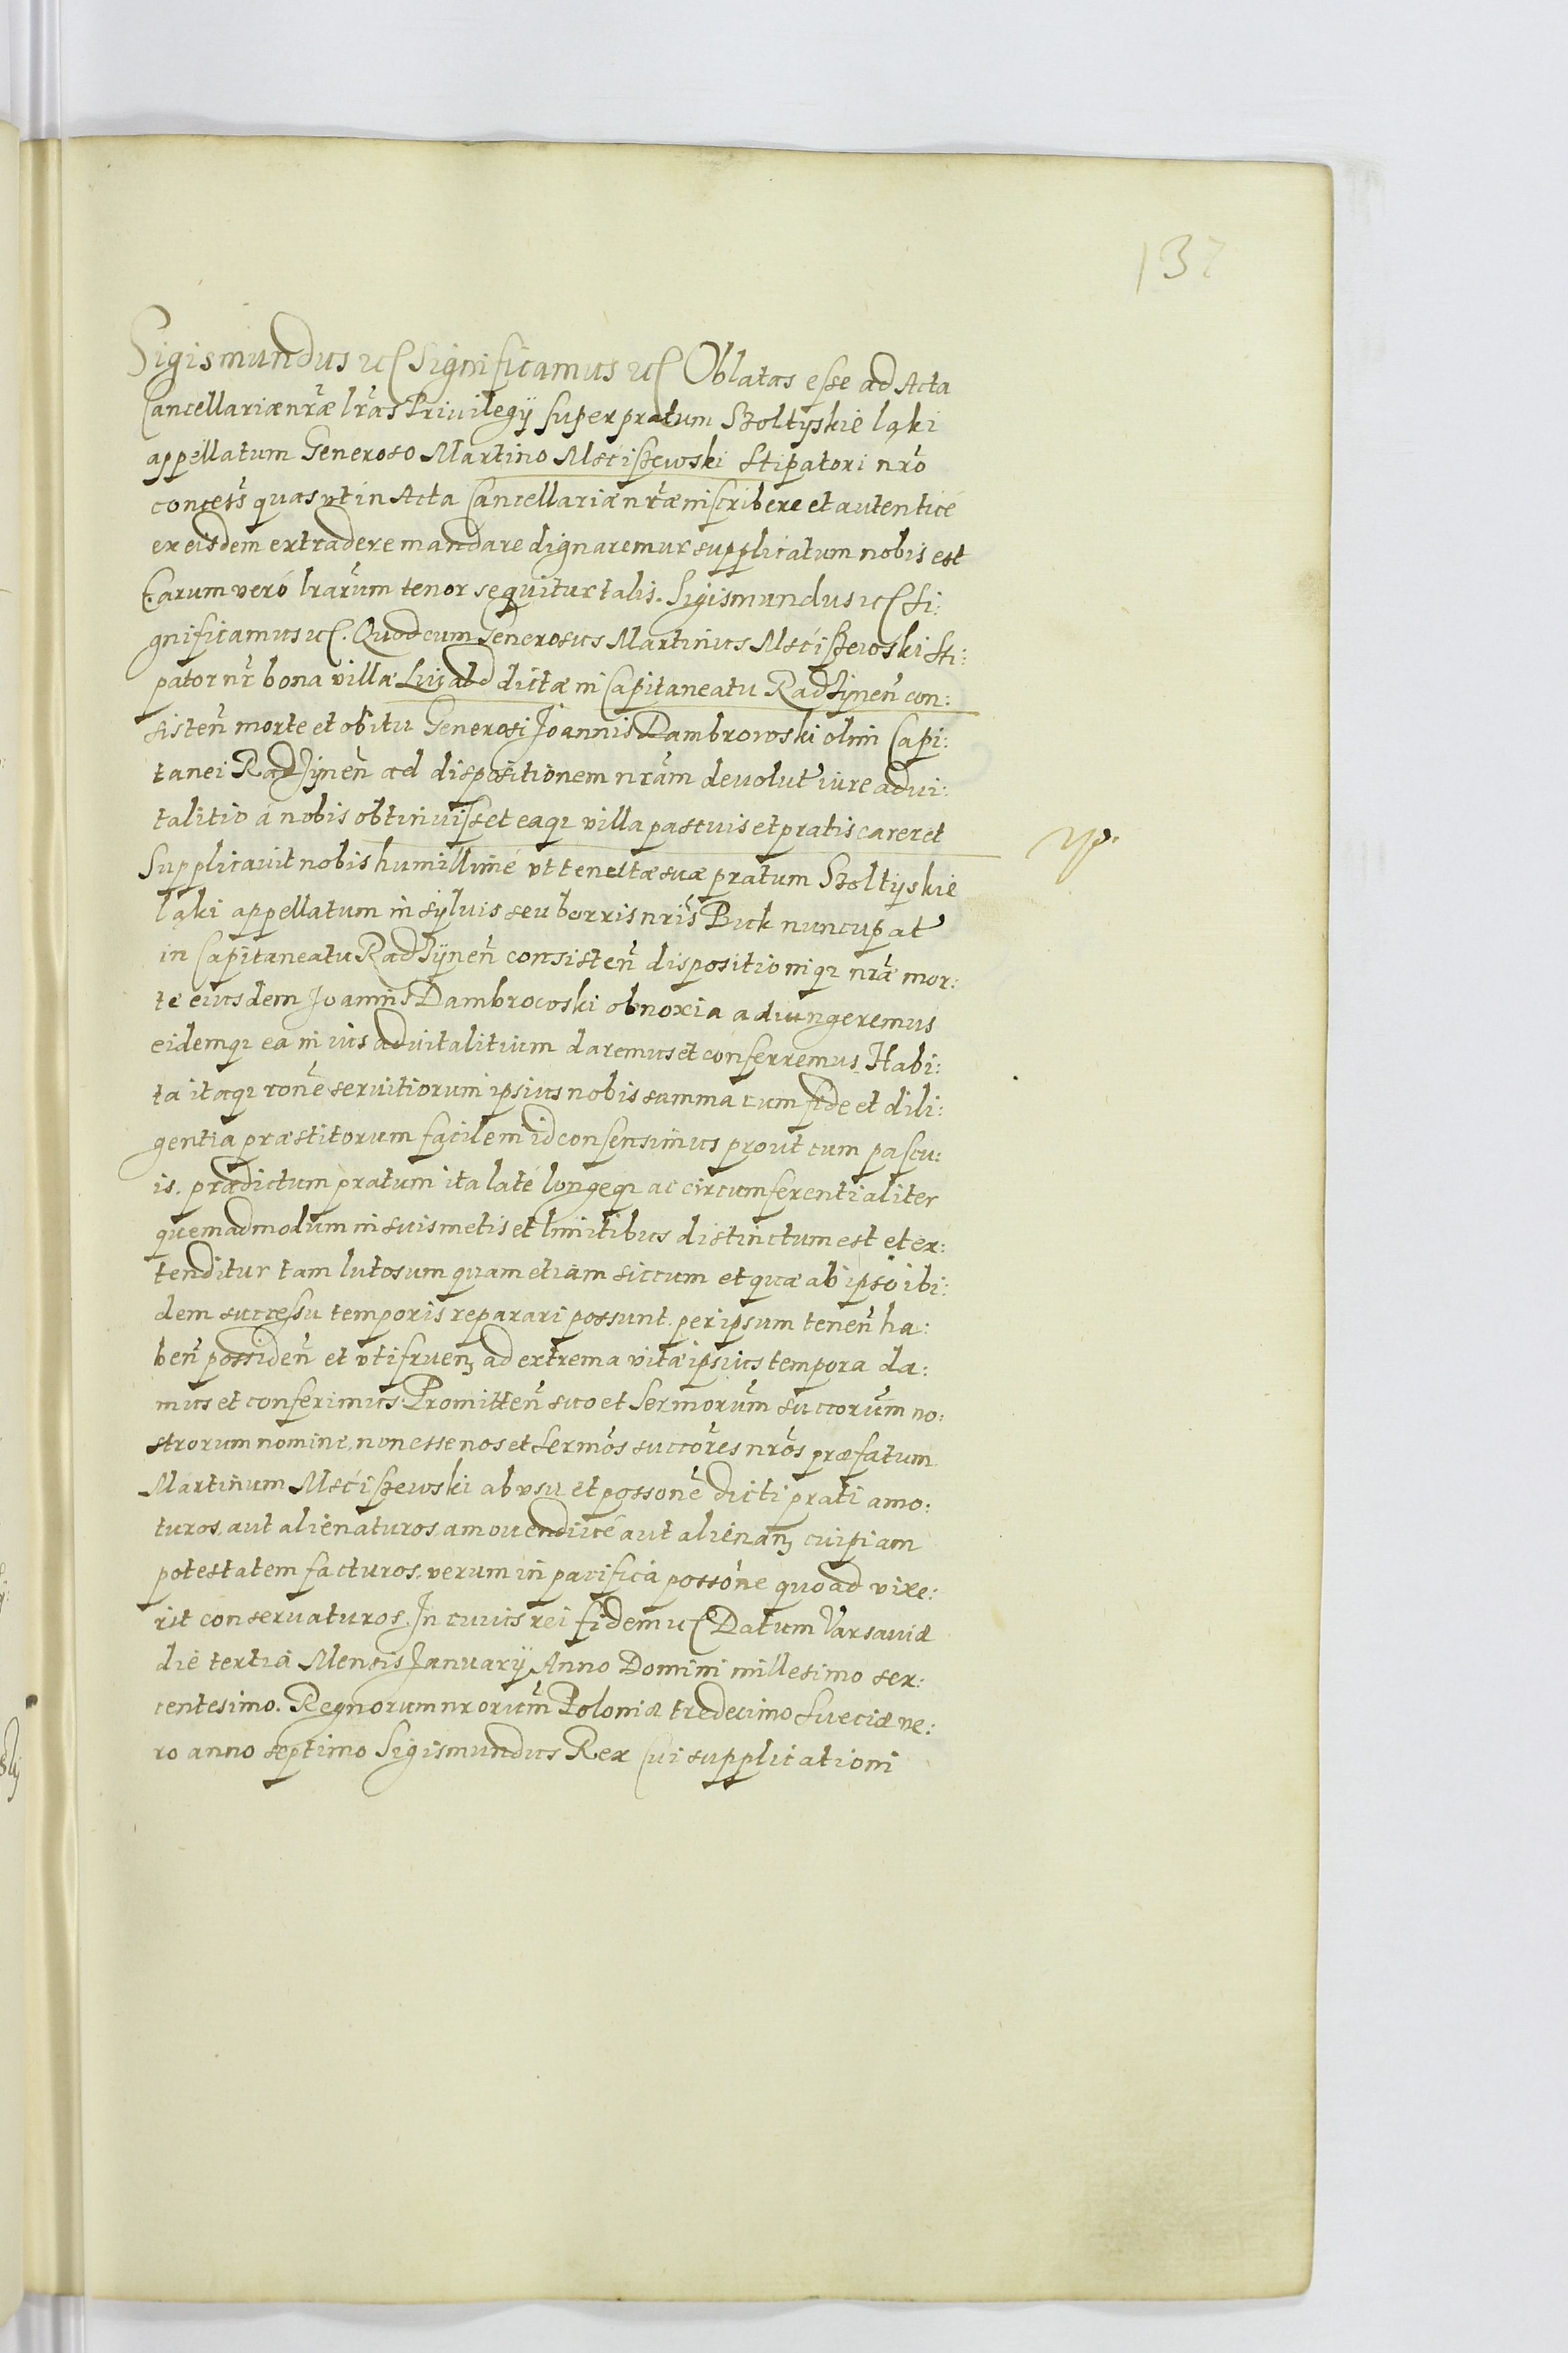 137
Sigismundus etc Significamus etc Oblatas esse ad Acta
Cancellariæ nr̃æ lr̃as Priuilegÿ super pratum Szoltyskie ląki
appellatum Generoso Martino Msciszewski Stipatori nr̃o
concess̃ quas vt in Acta Cancellariæ nr̃æ inscribere et autenticé
ex eisdem extradere mandare dignaremur supplicatum nobis est
Earum veró lrarũm tenor sequitur talis. Sigismundus etc Si:
gnificamus etc. Quod cum Generosus Martinus Msciszewski Sti:
pator nr̃ bona villæ dictæ in Capitaneatu Radzynen̄ con:
sisten̄ morte et obitu Generosi Joannis Dambrowski olim Capi:
tanei Radzynen̄ ad dispositionem nr̃am deuolut iure advi:
talitio á nobis obtinuisset eaq; villa pascuis et pratis careret
Supplicauit nobis humillimé vt tenutæ suæ pratum Szoltyskie
ląki appellatum in syluis seu borris nr̃is Buck nuncupat
in Capitaneatu Radzynen̄ consisten̄ dispositioniq; nr̃æ mor:
te eiusdem Joannis Dambrowski obnoxia adiungeremus
eidemq; ea in ius aduitalitium daremus et conferremus. Habi:
ta itaq; rõne seruitiorum ipsius nobis summa cum fide et dili:
gentia præstitorum facile in id consensimus prout cum pascu:
is. prædictum pratum ita laté longeq; ac circumferentialiter
quemadmodum in suis metis et limitibus distinctum est et ex:
tenditur tam lutosum quam etiam siccum et quæ ab ipso ibi:
dem successu temporis reparari possunt. per ipsum tenen̄ ha:
ben̄ possiden̄ et vtifruen; ad extrema vitæ ipsius tempora da:
mus et conferimus. Promitten̄ suo et Sermorũm succorũm no:
strorum nomine, non esse nos et Sermõs succorẽs nr̃os præfatum
Martinum Msciszewski ab vsu et possonẽ dicti prati amo:
turos, aut alienaturos, amouendiué aut alienan; cuipiam
potestatem facturos. verum in pacifica possõne quoad vixe:
rit conseruaturos. In cuius rei fidem etc Datum Varsauiæ
die tertia Mensis Januarÿ Anno Domini millesimo sex:
centesimo. Regnorum nrorũm Poloniæ tredecimo Sueciæ ve:
ro anno septimo Sigismundus Rex Cui supplicationi